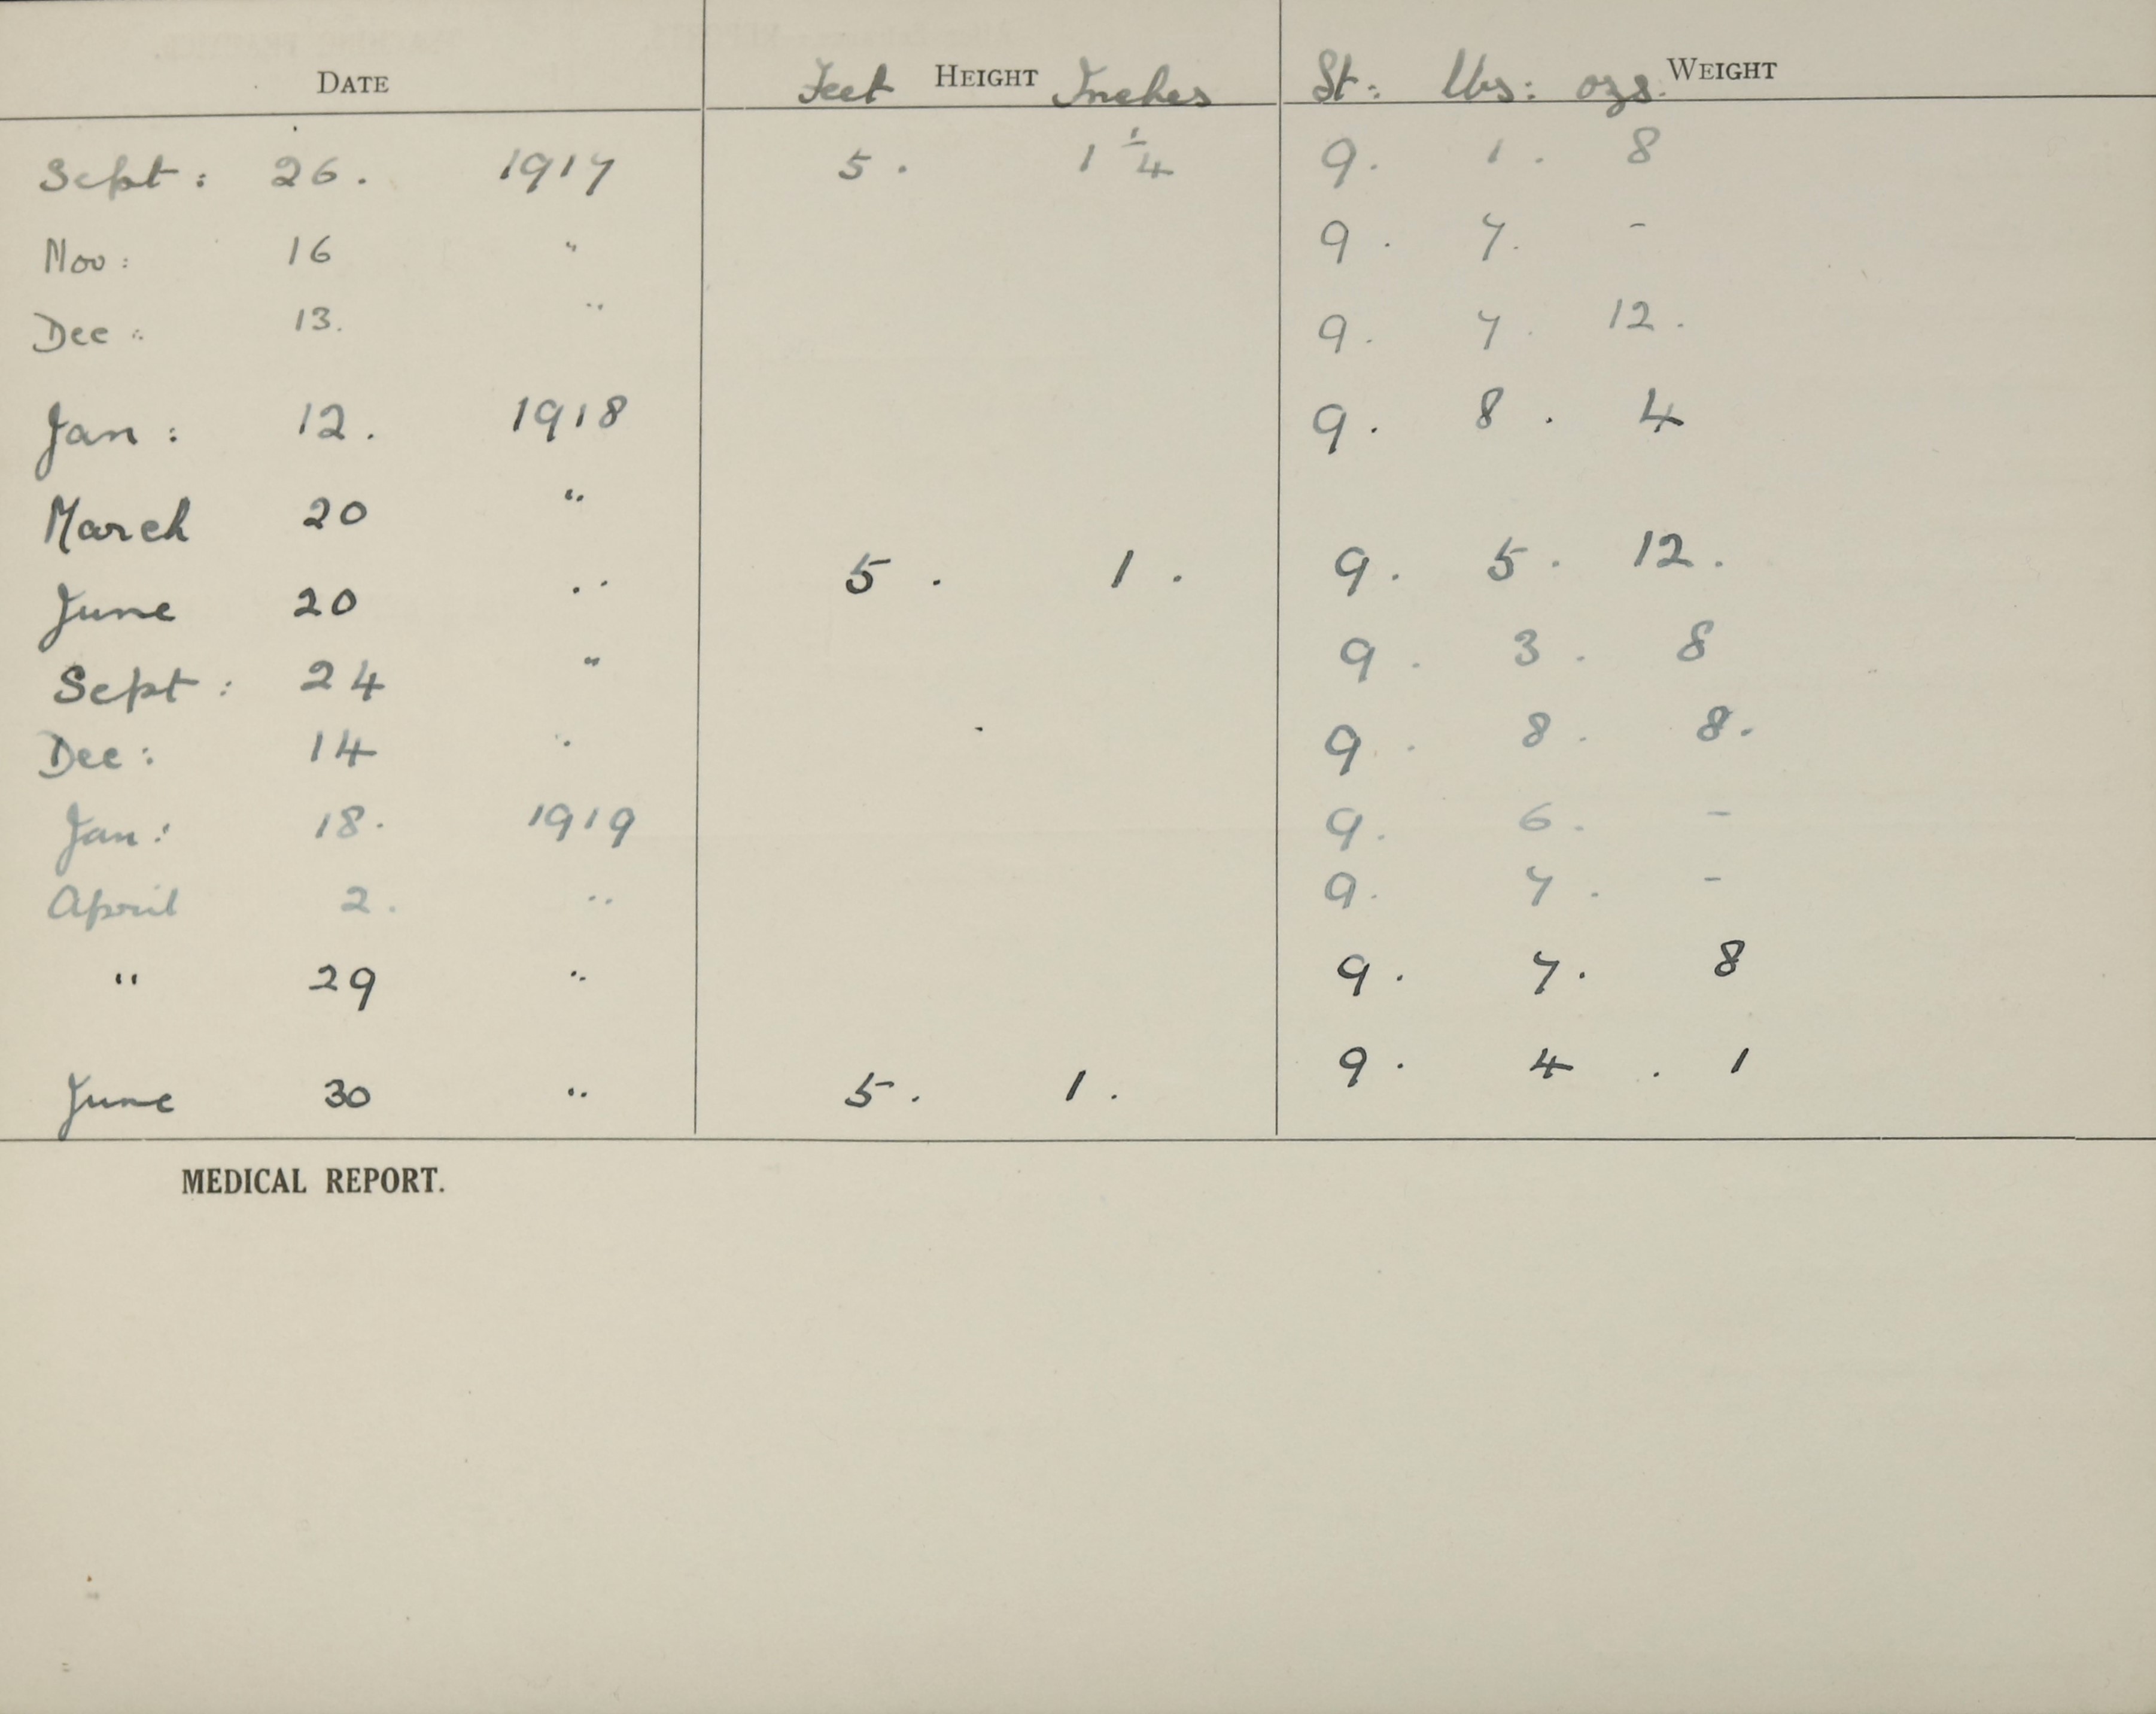 DATE Feet HEIGHT Inches St: lbs: ozs. WEIGHT
Sept: 26. 1917 5. 1 1/4 9. 1. 8
Nov: 16 " 9. 7. -
Dec: 13. " 9. 7. 12.
Jan: 12. 1918 9. 8. 4
March 20 "
June 20 " 5. 1. 9. 5. 12.
Sept: 24 " 9. 3. 8
Dec: 14 " 9. 8. 8.
Jan: 18. 1919 9. 6. -
April 2. " 9. 7. -
" 29 " 9. 7. 8
June 30 " 5. 1. 9. 4. 1
MEDICAL REPORT.